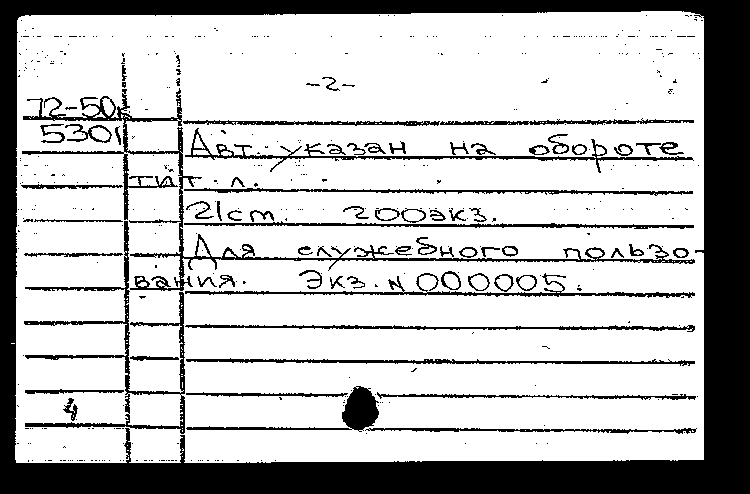 -2-
72-50к
5301
Авт. указан на обороте
тит. л.
21 cm. 200 экз.
Для служебного пользо-
вания. Экз. N 000005.
4